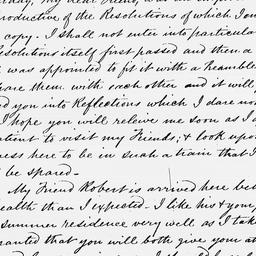 my dear Friend, was
roductive of the Resolutions of which I en
copy. I shall not enter into particula
esolutions itself first passed and then a
was appointed to fit it with a Preamble
pare them with each other and it will
d you into Reflections which I dare no
I hope you will releive me soon as I a
atient to visit my Friends; & look upo
ess here to be in such a train that I
be spared.
My Friend Robert is arrived here bet
ealth than I expected. I like his & your
summer residence very well as I take
ranted that you will both give your at